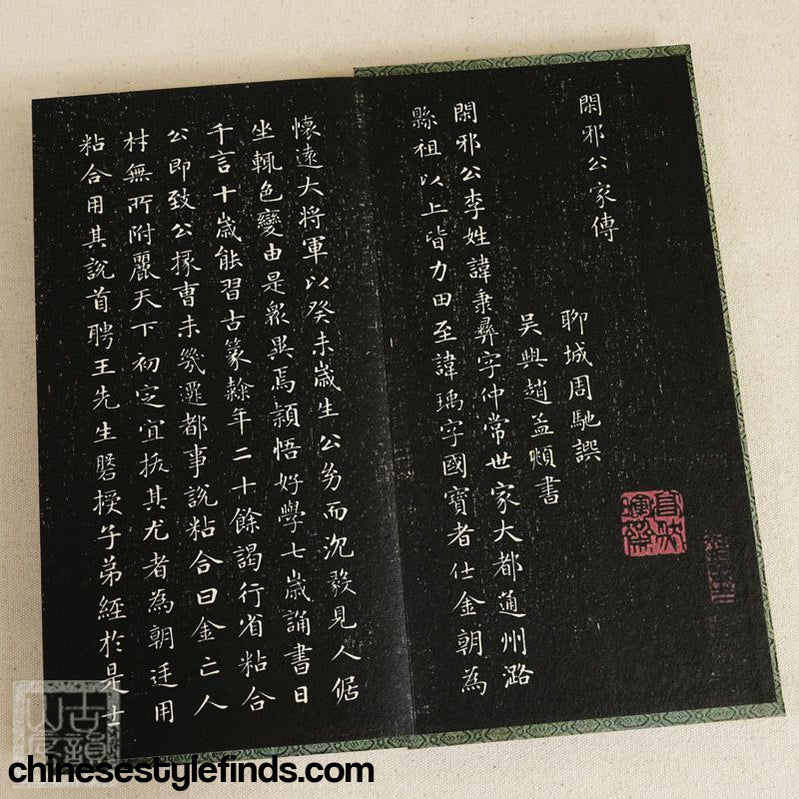 閑邪公家傳
聊城周馳譔
吳興趙孟頫書
閑邪公李姓諱秉彝字仲常世家大都通州潞
縣祖以上皆力田至諱瑀字國寶者仕金朝為
懷遠大将軍以癸未歲生公㓜而沉毅見人倨
坐輒色變由是衆異焉穎悟好學七歲誦書日
千言十歲能習古篆籀年二十餘謁行省粘合
公即致公掾曹未幾遷都事說粘合曰金亡人
材無所附麗天下初定宜拔其尤者為朝廷用
粘合用其說首聘王先生磐授子弟經於是士
古韻
chinesestylefinds.com